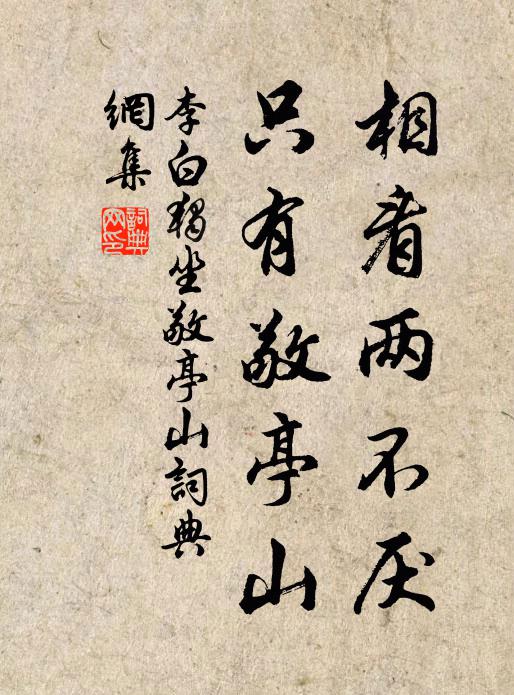 相看两不厌
只有敬亭山
李白獨坐敬亭山詞典
網集
詞典網印